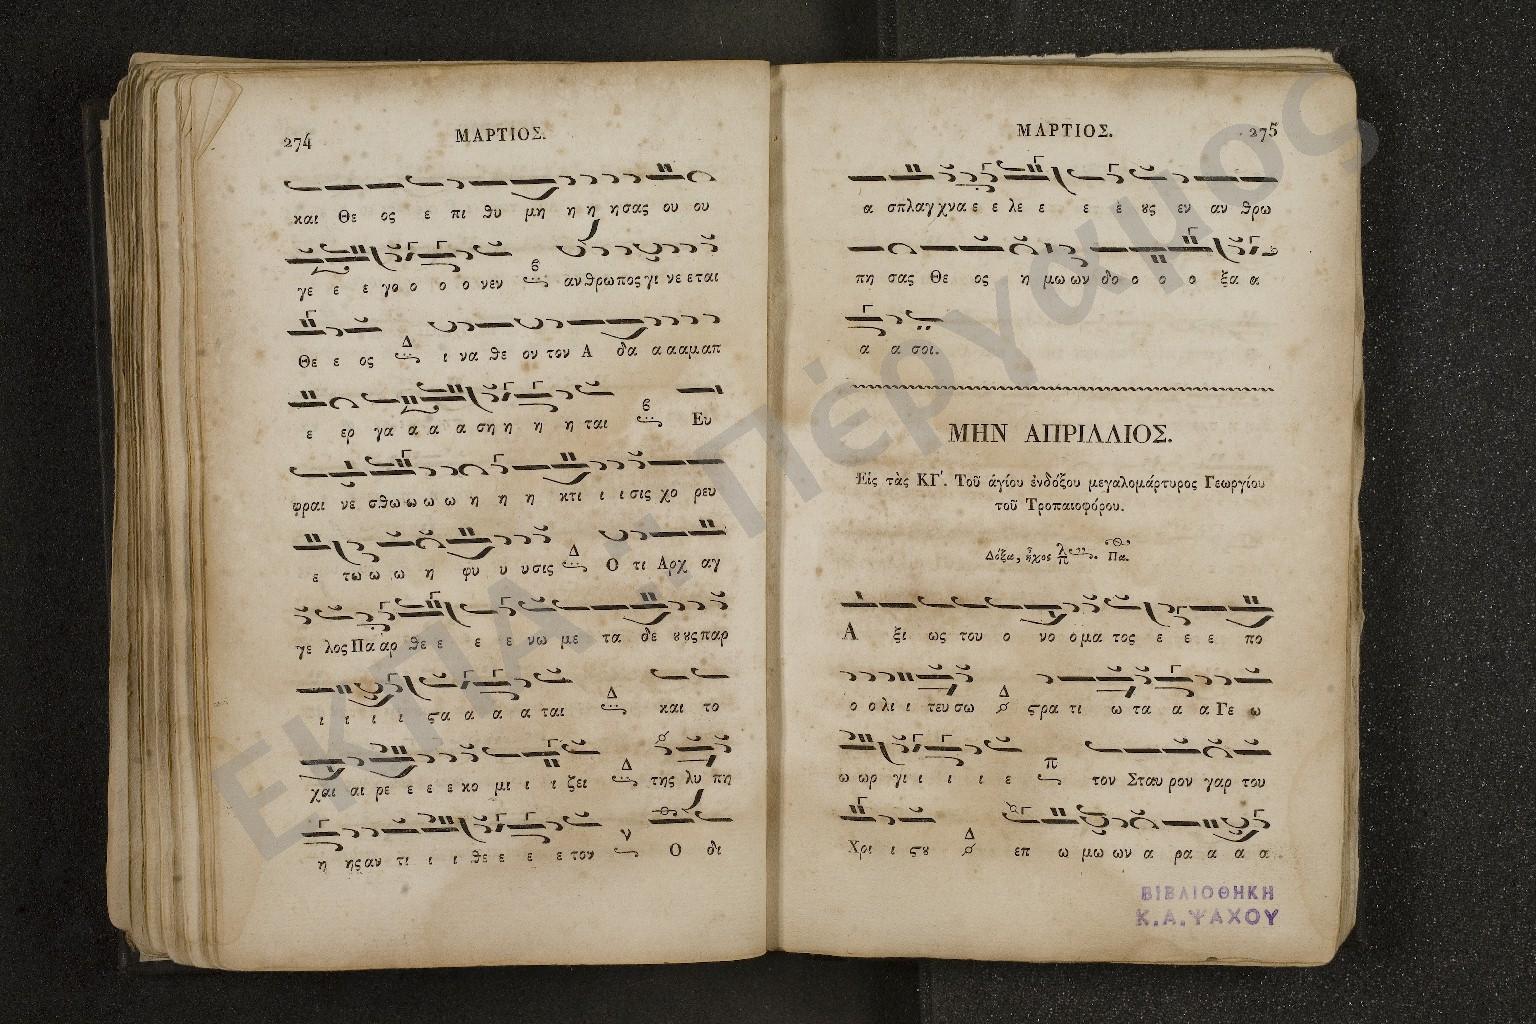 274
ΜΑΡΤΙΟΣ.
και Θε ος ε πι θυ μη η η ησας ου ου
γε ε ε γο ο ο ο νεν ανθρωπος γι νε εται
Θε ε ος ι να θε ον τον Α δα α α αμαπ
ε ερ γα α α α ση η η η ται Ευ
φραι νε σθω ω ω ω η η η κτι ι ι σις χο ρευ
ε τω ω ω η φυ υ υσις Ο τι Αρχ αγ
γε λος Πα αρ θε ε ε ε ε νω με τα δε ȣ ȣς παρ
ι ι ι ι ϛα α α α ται και το
χαι αι ρε ε ε ε κο μι ι ι ζει της λυ πη
η ης αν τι ι ι θε ε ε ε τον Ο δι
ΜΑΡΤΙΟΣ.
275
α σπλαγχνα ε ε λε ε ε ε ȣς εν αν θρω
πη σας Θε ος η μω ων δο ο ο ο ξα α
α α σοι.
ΜΗΝ ΑΠΡΙΛΛΙΟΣ.
Εἰς τὰς ΚΓʹ. Τοῦ ἁγίου ἐνδόξου μεγαλομάρτυρος Γεωργίου
τοῦ Τροπαιοφόρου.
Δόξα, ἦχος Πα.
Α ξι ως του ο νο ο μα τος ε ε ε πο
ο ο λι ι τευ σω ϛρα τι ω τα α α Γε ω
ω ωρ γι ι ι ι ε τον Σταυ ρον γαρ του
Χρι ι ϛȣ επ ω μω ων α ρα α α α
ΒΙΒΛΙΟΘΗΚΗ
Κ.Α.ΨΑΧΟΥ
ΕΚΠΑ - Πέργαμος